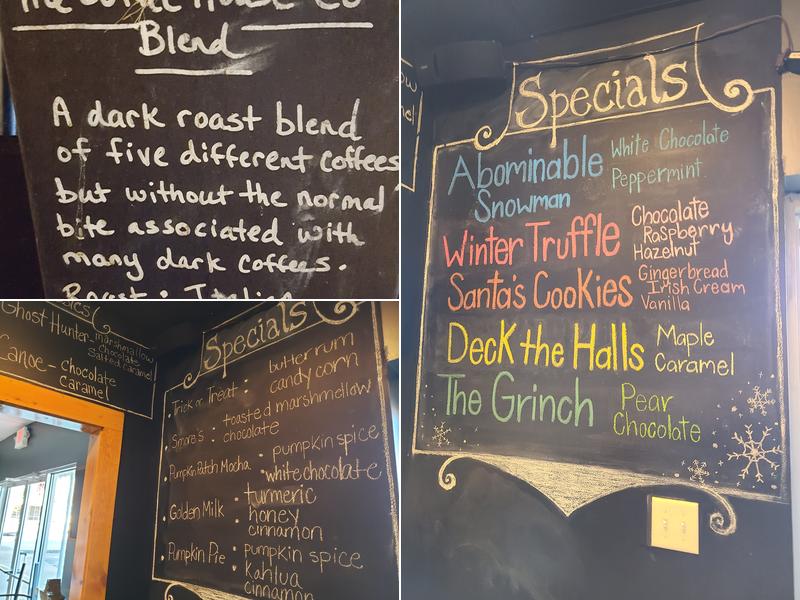 Blend
A dark roast blend
of five different coffees
but without the normal
bite associated with
many dark coffees.
Roast: Italian
Specials
Abominable Snowman
White Chocolate
Peppermint
Winter Truffle
Chocolate
Raspberry
Hazelnut
Santa's Cookies
Gingerbread
Irish Cream
Vanilla
Deck the Halls
Maple
Caramel
The Grinch
Pear
Chocolate
Ghost Hunter - marshmallow
chocolate
salted caramel
Canoe - chocolate
caramel
Specials
Trick or Treat: butter rum
candy corn
Smore's: toasted marshmellow
chocolate
Pumpkin Patch Mocha: pumpkin spice
white chocolate
Golden Milk: turmeric
honey
cinnamon
Pumpkin Pie: pumpkin spice
Kahlua
cinnamon